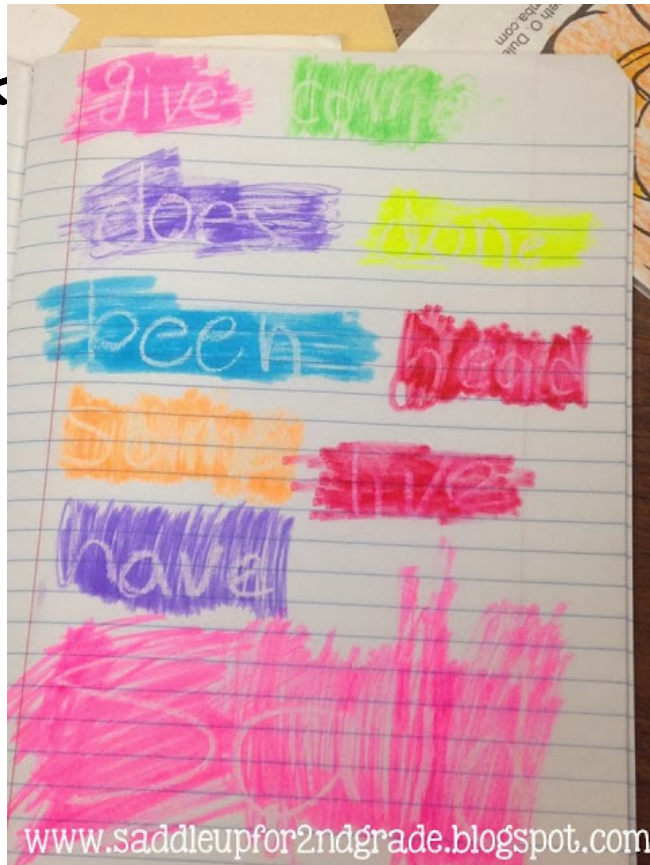 give come
does done
been read
some live
have
said
www.saddleupfor2ndgrade.blogspot.com